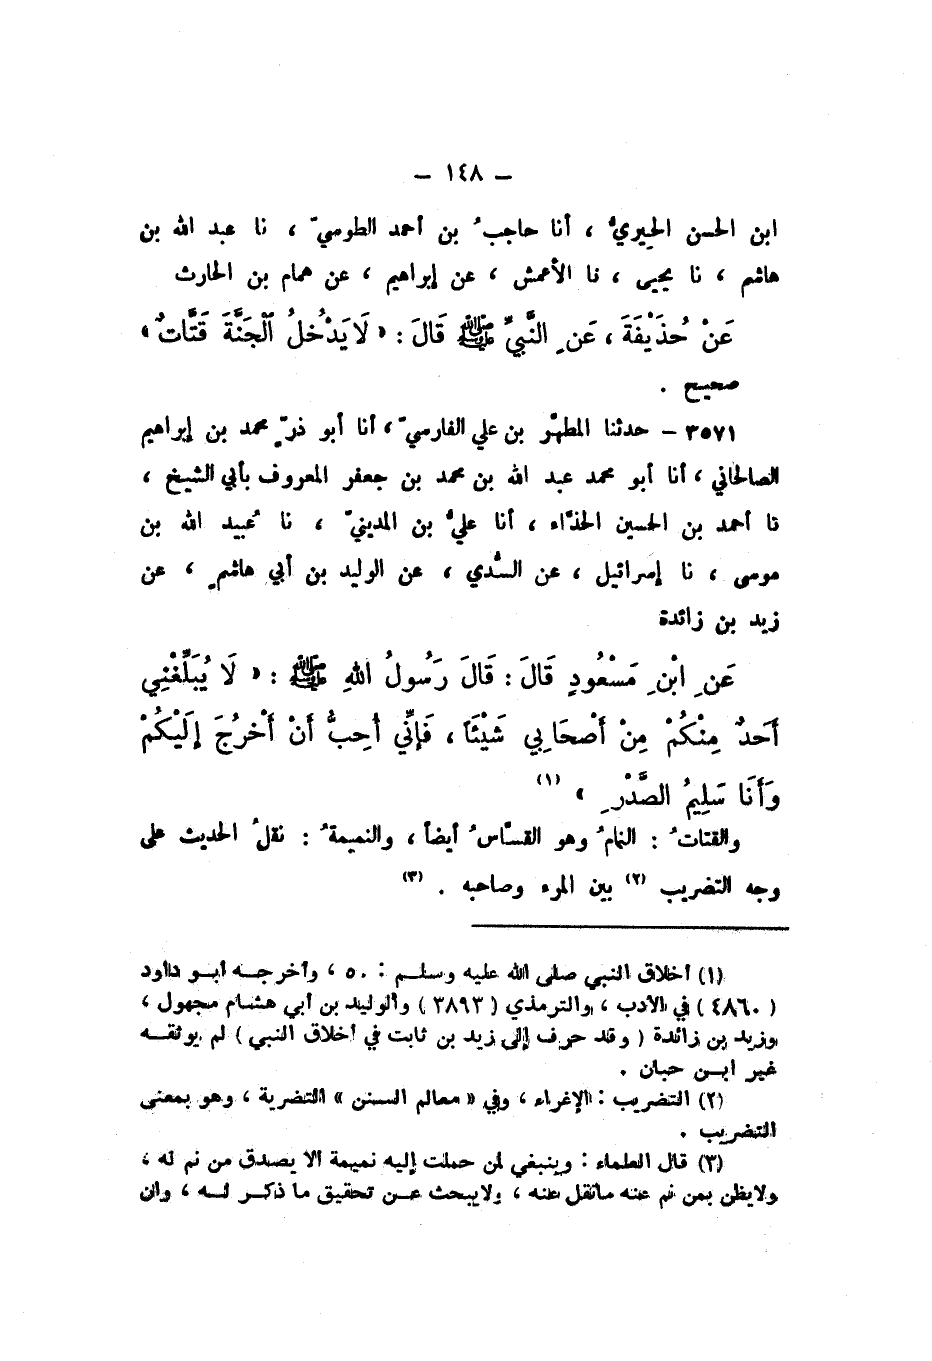 – ١٤٨ –
ابن الحسن الحيريُّ ، أنا حاجبُ بن أحمد الطوسيّ ، نا عبد الله بن
هاشم ، نا يحيى ، نا الأعمش ، عن إبراهيم ، عن همام بن الحارث
عَنْ حُذَيْفَةَ ، عَنِ النَّبِيِّ ﷺ قَالَ : « لَا يَدْخُلُ ٱلْجَنَّةَ قَتَّاتٌ »
صحيح .
٣٥٧١ – حدثنا المطهّر بن علي الفارسيّ ، أنا أبو ذرّ محمد بن إبراهيم
الصالحاني ، أنا أبو محمد عبد الله بن محمد بن جعفر المعروف بأبي الشيخ ،
نا أحمد بن الحسين الحذّاء ، أنا عليُّ بن المدينيّ ، نا عُبيد الله بن
موسى ، نا إسرائيل ، عن السُّدي ، عن الوليد بن أبي هاشمٍ ، عن
زيد بن زائدة
عَنِ ابْنِ مَسْعُودٍ قَالَ : قَالَ رَسُولُ اللهِ ﷺ : « لَا يُبَلِّغْنِي
أَحَدٌ مِنْكُمْ مِنْ أَصْحَابِي شَيْئَاً ، فَإِنِّي أُحِبُّ أَنْ أَخْرُجَ إِلَيْكُمْ
وَأَنَا سَلِيمُ الصَّدْرِ » (١)
والقتاتُ : النمامُ وهو القسّاسُ أيضاً ، والنميمةُ : نقلُ الحديث على
وجه التضريب (٢) بين المرء وصاحبه . (٣)
(١) أخلاق النبي صلى الله عليه وسلم : ٥٠ ، وأخرجه أبو داود
( ٤٨٦٠ ) في الأدب ، والترمذي ( ٣٨٩٣ ) والوليد بن أبي هشام مجهول ،
وزيد بن زائدة ( وقد حرف إلى زيد بن ثابت في أخلاق النبي ) لم يوثقه
غير ابن حبان .
(٢) التضريب : الإغراء ، وفي « معالم السنن » التضرية ، وهو بمعنى
التضريب .
(٣) قال العلماء : وينبغي لمن حملت إليه نميمة الا يصدق من نم له ،
ولايظن بمن نم عنه مانقل عنه ، ولايبحث عن تحقيق ما ذكر له ، وان